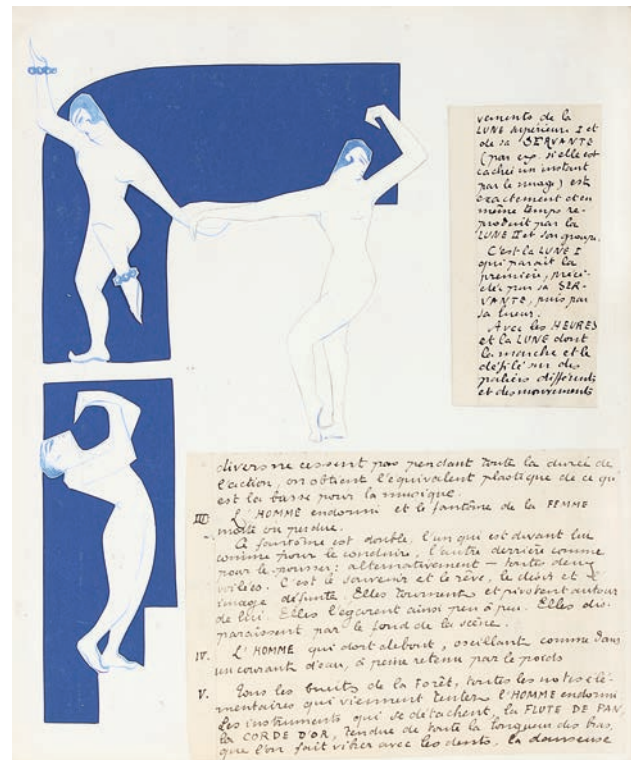 vements de la
LUNE supérieure I et
de sa SERVANTE
(par ex. si elle est
cachée un instant
par le nuage) est
exactement et en
même temps re-
produit par la
LUNE II et son groupe.
C'est la LUNE I
qui paraît la
première, précé-
dée par sa SER-
VANTE, puis par
sa lueur.
Avec les HEURES
et la LUNE dont
la marche et le
défilé sur des
paliers différents
et des mouvements
divers ne cessent pas pendant toute la durée de
l'action, on obtient l'équivalent plastique de ce qu'
est la basse pour la musique.
III L'HOMME endormi et le fantôme de la FEMME
morte ou perdue.
Ce fantôme est double, l'un qui est devant lui
comme pour le conduire, l'autre derrière comme
pour le pousser: alternativement — toutes deux
voilées. C'est le souvenir et le rêve, le désir et l'
image défunte. Elles tournent et pivotent autour
de lui. Elles l'égarent ainsi peu à peu. Elles dis-
paraissent par le fond de la scène.
IV. L'HOMME qui dort debout, oscillant comme dans
un courant d'eau, à peine retenu par le poids
V. Tous les bruits de la Forêt, toutes les notes élé-
mentaires qui viennent tenter l'HOMME endormi
Les instruments qui se détachent, la FLUTE DE PAN,
la CORDE D'OR, tendue de toute la longueur des bras,
que l'on fait vibrer avec les dents, la danseuse